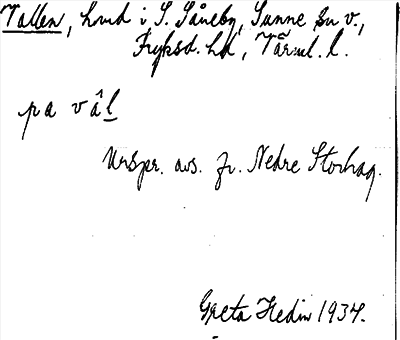 Vallen, hmd i S. Såneby, Sunne sn v.,
Fryksd. hd, Värml. l.
pa vål
Urspr. avs. fr. Nedre Storhag.
Greta Hedin 1937.